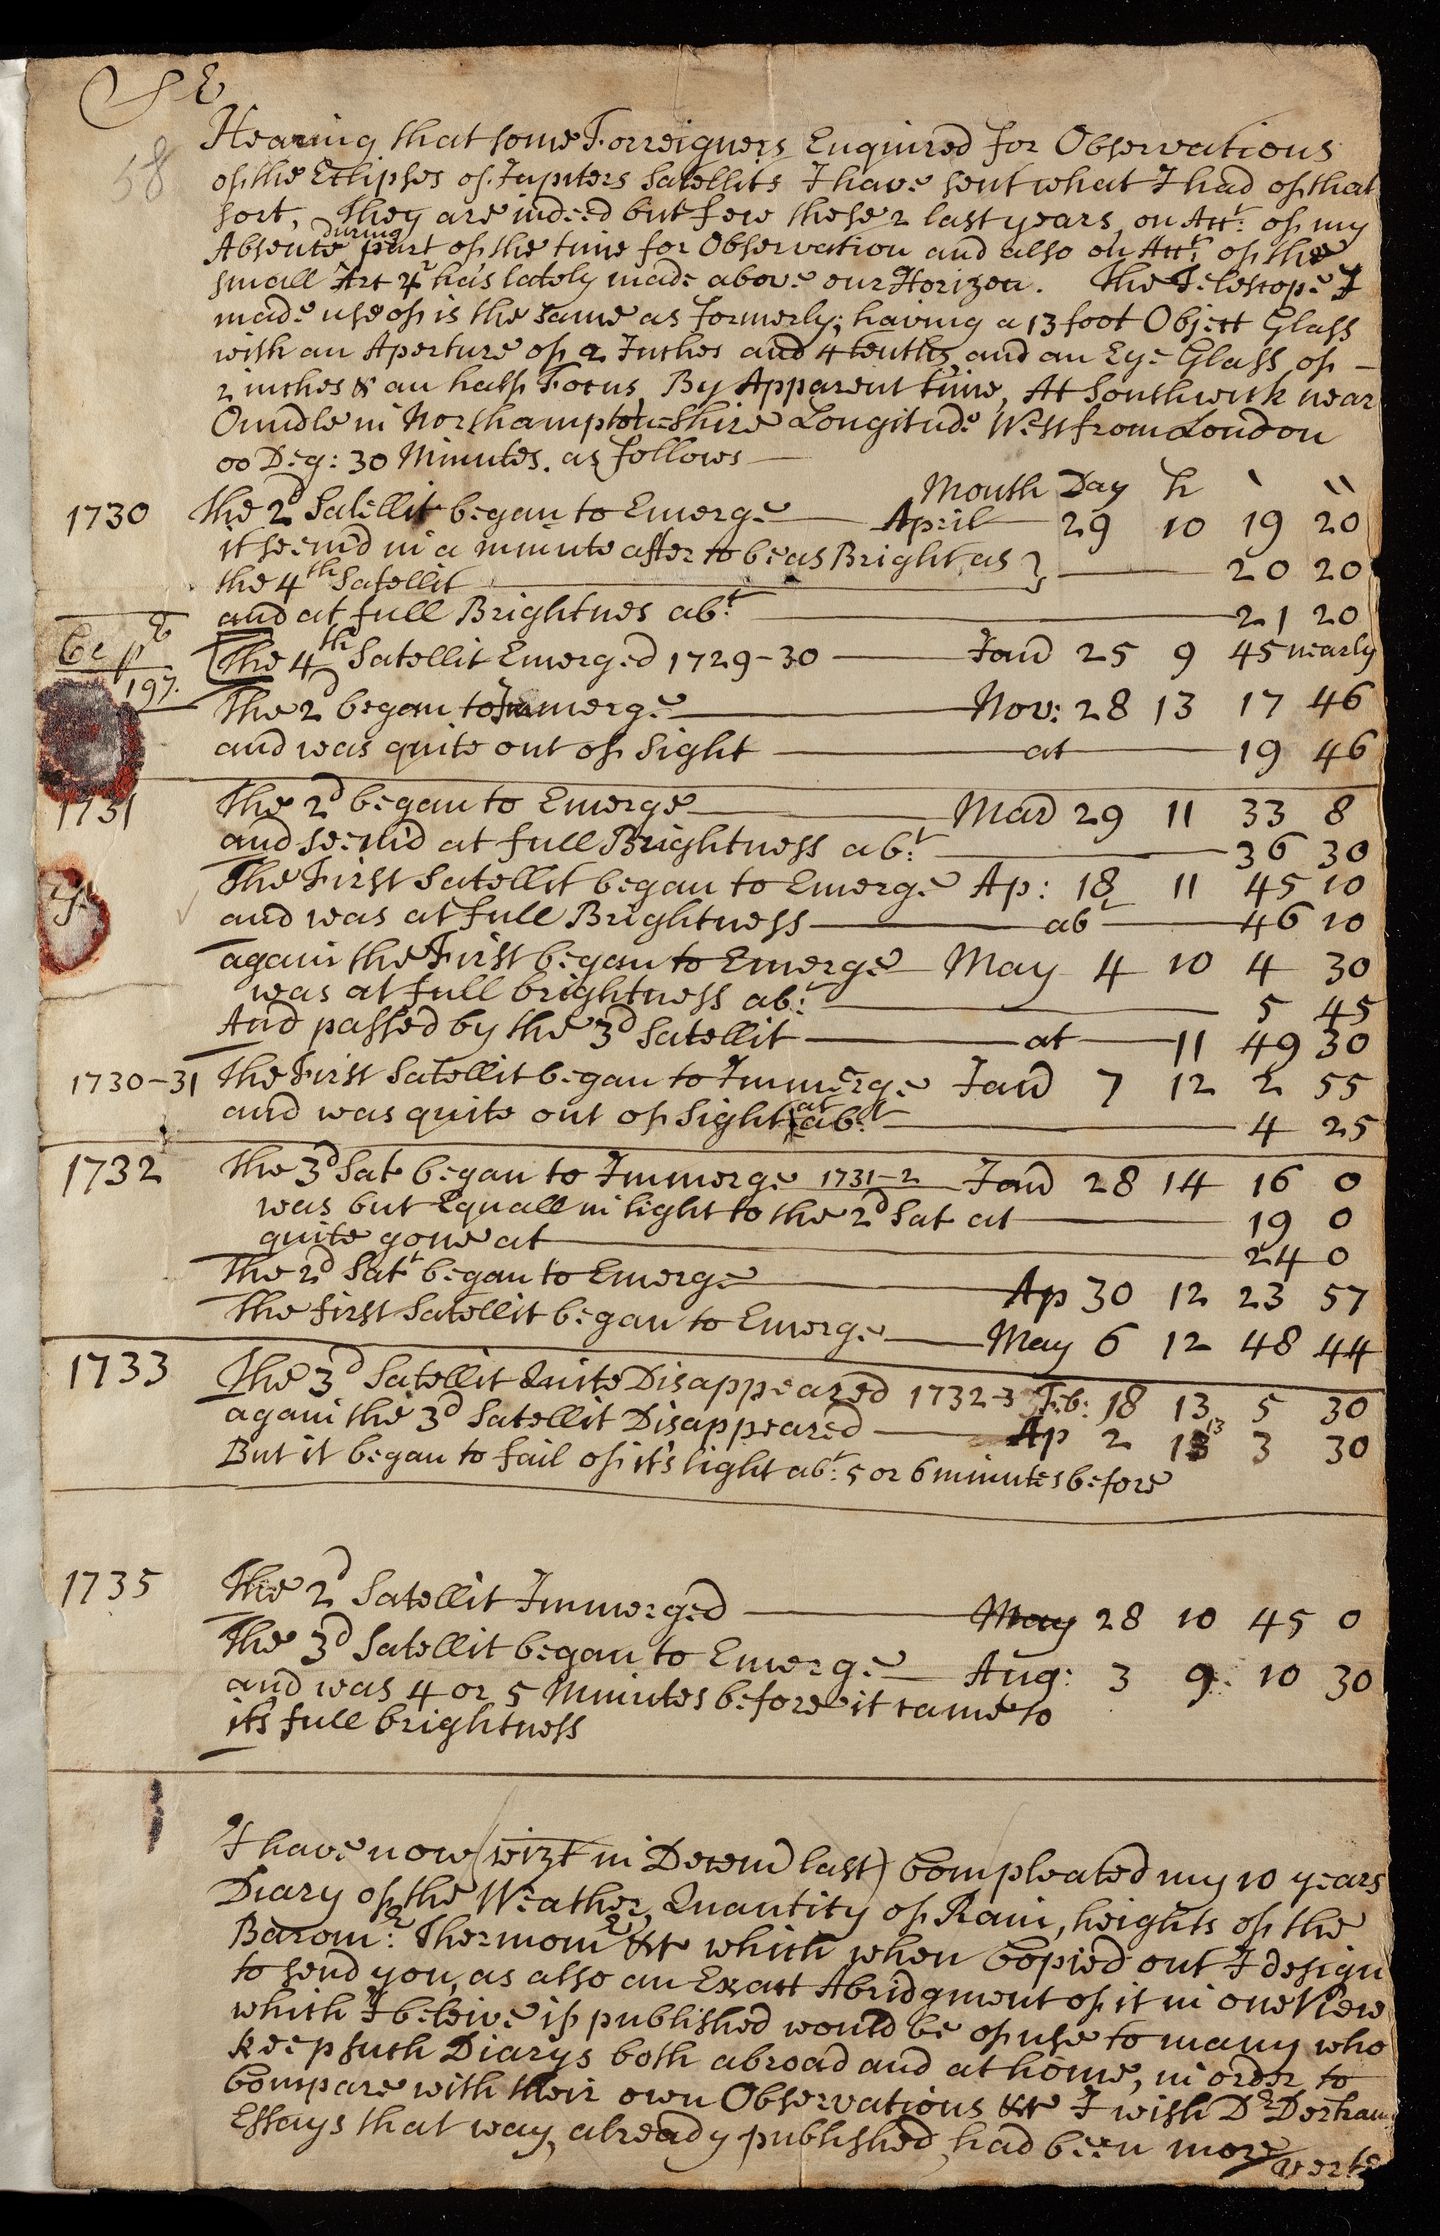 S E
58
Hearing that some Forreigners Enquired for Observations
of the Eclipses of Jupiters Satellits I have sent what I had of that
sort, They are indeed but few these 2 last years, on Acct: of my
during
Absente part of the time for Observation and also on Acct: of the
small Arc ♃ has lately made above our Horizon. The Telescope I
made use of is the same as formerly; having a 13 foot Object Glass
with an Aperture of 2 Inches and 4 tenths, and an Eye Glass of –
2 inches & an half Focus, By Apparent time, At Southwick near
Oundle in Northamptonshire Longitude West from London
00 Deg: 30 Minutes. as follows
Month Day h ' "
1730 The 2d Satellit began to Emerge April 29 10 19 20
it seem'd in a minute after to be as Bright as
the 4th Satellit 20 20
and at full Brightnes abt 21 20
197.
The 4th Satellit Emerged 1729-30 Jand 25 9 45 nearly
The 2d began to Immerge Nov: 28 13 17 46
and was quite out of sight at 19 46
1731 The 2d began to Emerge Mard 29 11 33 8
and seem'd at full Brightness abt: 36 30
The First Satellit began to Emerge Ap: 18 11 45 10
and was at full Brightness abt 46 10
again the First began to Emerge May 4 10 4 30
was at full brightness abt: 5 45
And passed by the 3d Satellit at 11 49 30
1730-31 The First Satellit began to Immerge Jand 7 12 2 55
at
and was quite out of sight abt: 4 25
1732 The 3d Sat began to Immerge 1731-2 Jand 28 14 16 0
was but Equall in light to the 2d Sat at 19 0
quite gone at 24 0
The 2d Satt began to Emerge Ap 30 12 23 57
The first Satellit began to Emerge May 6 12 48 44
1733 The 3d Satellit Quite Disappeared 1732-3 Feb: 18 13 5 30
again the 3d Satellit Disappeared Ap 2 13 13 3 30
But it began to fail of it's light abt: 5 or 6 minutes before
1735 The 2d Satellit Immerged May 28 10 45 0
The 3d Satellit began to Emerge Aug: 3 9 10 30
and was 4 or 5 Minutes before it came to
its full brightness
I have now (vizt in Decemd last) Compleated my 10 years
Diary of the Weather, Quantity of Rain, heights of the
Baromr: Thermomr &c which when Copied out I design
to send you, as also an Exact Abridgment of it in one View
which I beleive if published would be of use to many who
keep such Diarys both abroad and at home, in order to
Compare with their own Observations &c I wish Dr Derham
Essays that way, already published, had been more
verte